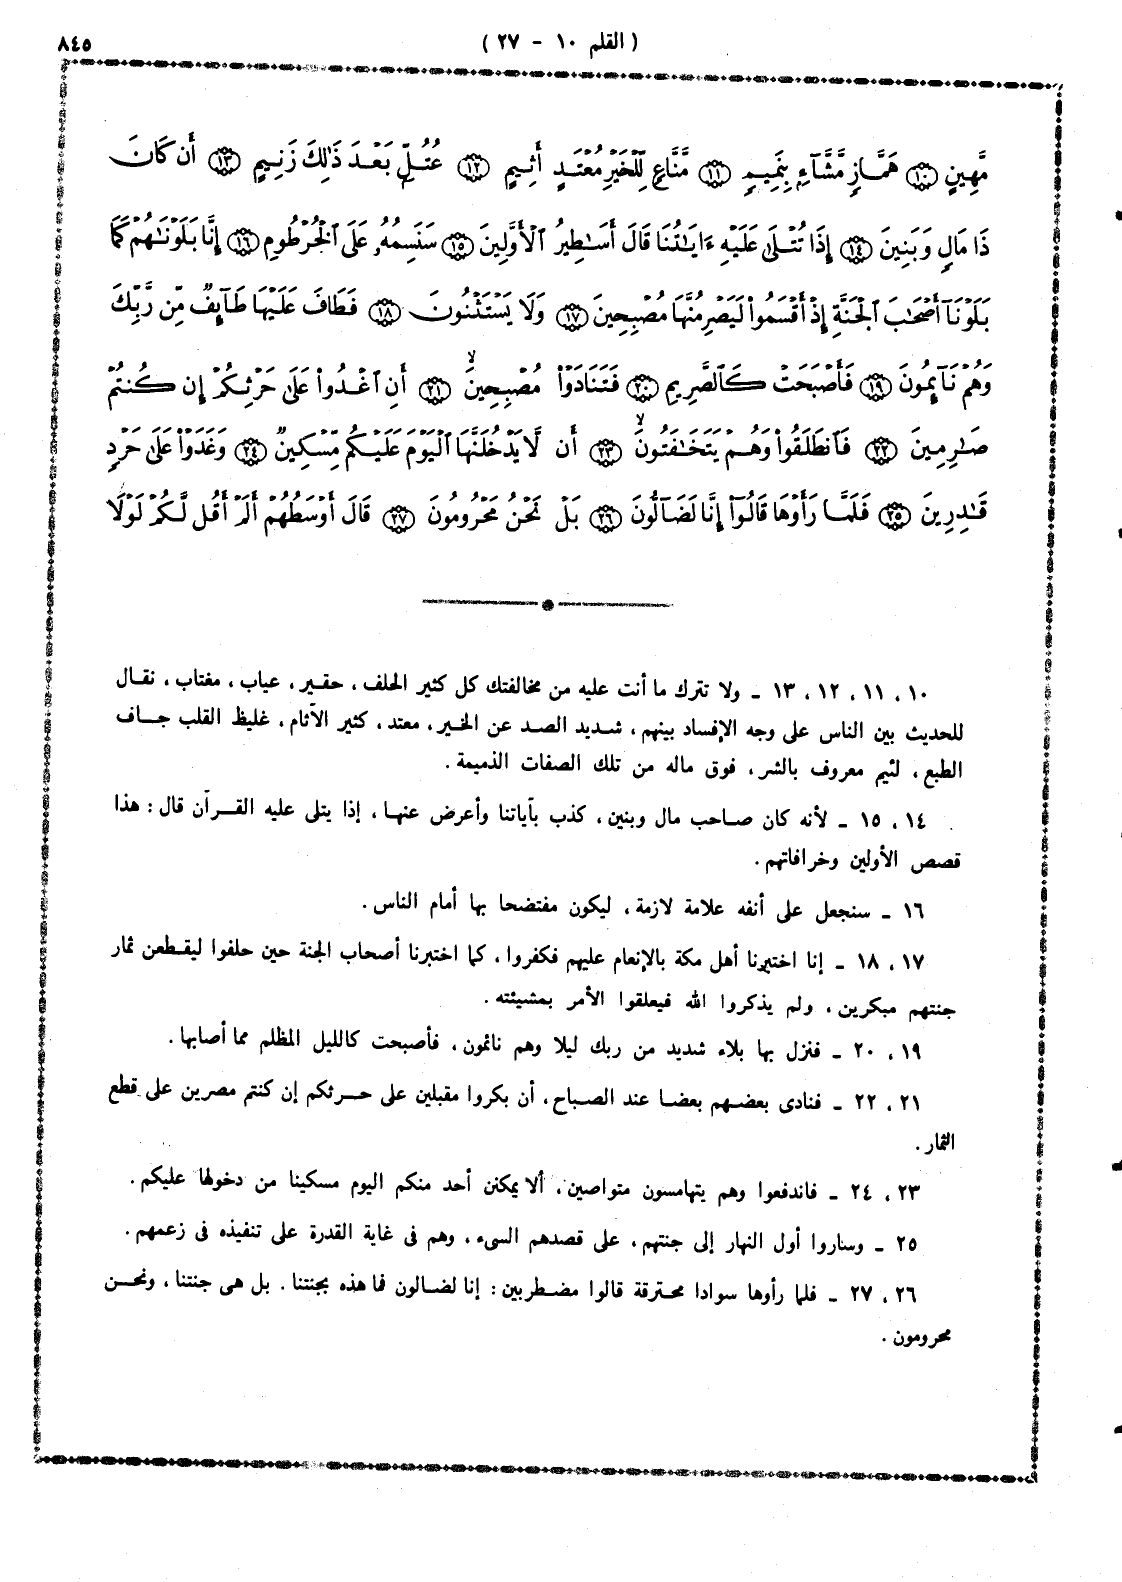 ٨٤٥
( القلم ١٠ - ٢٧ )
مَّهِينٍ ۝١٠ هَمَّازٍ مَّشَّآءٍ بِنَمِيمٍ ۝١١ مَّنَّاعٍ لِّلْخَيْرِ مُعْتَدٍ أَثِيمٍ ۝١٢ عُتُلٍّ بَعْدَ ذَٰلِكَ زَنِيمٍ ۝١٣ أَن كَانَ
ذَا مَالٍ وَبَنِينَ ۝١٤ إِذَا تُتْلَىٰ عَلَيْهِ ءَايَـٰتُنَا قَالَ أَسَـٰطِيرُ ٱلْأَوَّلِينَ ۝١٥ سَنَسِمُهُۥ عَلَى ٱلْخُرْطُومِ ۝١٦ إِنَّا بَلَوْنَـٰهُمْ كَمَا
بَلَوْنَآ أَصْحَـٰبَ ٱلْجَنَّةِ إِذْ أَقْسَمُوا۟ لَيَصْرِمُنَّهَا مُصْبِحِينَ ۝١٧ وَلَا يَسْتَثْنُونَ ۝١٨ فَطَافَ عَلَيْهَا طَآئِفٌ مِّن رَّبِّكَ
وَهُمْ نَآئِمُونَ ۝١٩ فَأَصْبَحَتْ كَٱلصَّرِيمِ ۝٢٠ فَتَنَادَوْا۟ مُصْبِحِينَ ۙ ۝٢١ أَنِ ٱغْدُوا۟ عَلَىٰ حَرْثِكُمْ إِن كُنتُمْ
صَـٰرِمِينَ ۝٢٢ فَٱنطَلَقُوا۟ وَهُمْ يَتَخَـٰفَتُونَ ۙ ۝٢٣ أَن لَّا يَدْخُلَنَّهَا ٱلْيَوْمَ عَلَيْكُم مِّسْكِينٌ ۝٢٤ وَغَدَوْا۟ عَلَىٰ حَرْدٍ
قَـٰدِرِينَ ۝٢٥ فَلَمَّا رَأَوْهَا قَالُوٓا۟ إِنَّا لَضَآلُّونَ ۝٢٦ بَلْ نَحْنُ مَحْرُومُونَ ۝٢٧ قَالَ أَوْسَطُهُمْ أَلَمْ أَقُل لَّكُمْ لَوْلَا
١٠ ، ١١ ، ١٢ ، ١٣ ـ ولا تترك ما أنت عليه من مخالفتك كل كثير الحلف ، حقير ، عياب ، مغتاب ، نقال
للحديث بين الناس على وجه الإفساد بينهم ، شديد الصد عن الخير ، معتد ، كثير الآثام ، غليظ القلب جاف
الطبع ، لئيم معروف بالشر ، فوق ماله من تلك الصفات الذميمة .
١٤ ، ١٥ ـ لأنه كان صاحب مال وبنين ، كذب بآياتنا وأعرض عنها ، إذا يتلى عليه القرآن قال : هذا
قصص الأولين وخرافاتهم .
١٦ ـ سنجعل على أنفه علامة لازمة ، ليكون مفتضحا بها أمام الناس .
١٧ ، ١٨ ـ إنا اختبرنا أهل مكة بالإنعام عليهم فكفروا ، كما اختبرنا أصحاب الجنة حين حلفوا ليقطعن ثمار
جنتهم مبكرين ، ولم يذكروا الله فيعلقوا الأمر بمشيئته .
١٩ ، ٢٠ ـ فنزل بها بلاء شديد من ربك ليلا وهم نائمون ، فأصبحت كالليل المظلم مما أصابها .
٢١ ، ٢٢ ـ فنادى بعضهم بعضا عند الصباح ، أن بكروا مقبلين على حرثكم إن كنتم مصرين على قطع
الثمار .
٢٣ ، ٢٤ ـ فاندفعوا وهم يتهامسون متواصين ، ألا يمكنن أحد منكم اليوم مسكينا من دخولها عليكم .
٢٥ ـ وساروا أول النهار إلى جنتهم ، على قصدهم السيء ، وهم فى غاية القدرة على تنفيذه فى زعمهم .
٢٦ ، ٢٧ ـ فلما رأوها سوادا محترقة قالوا مضطربين : إنا لضالون فما هذه بجنتنا . بل هى جنتنا ، ونحن
محرومون .